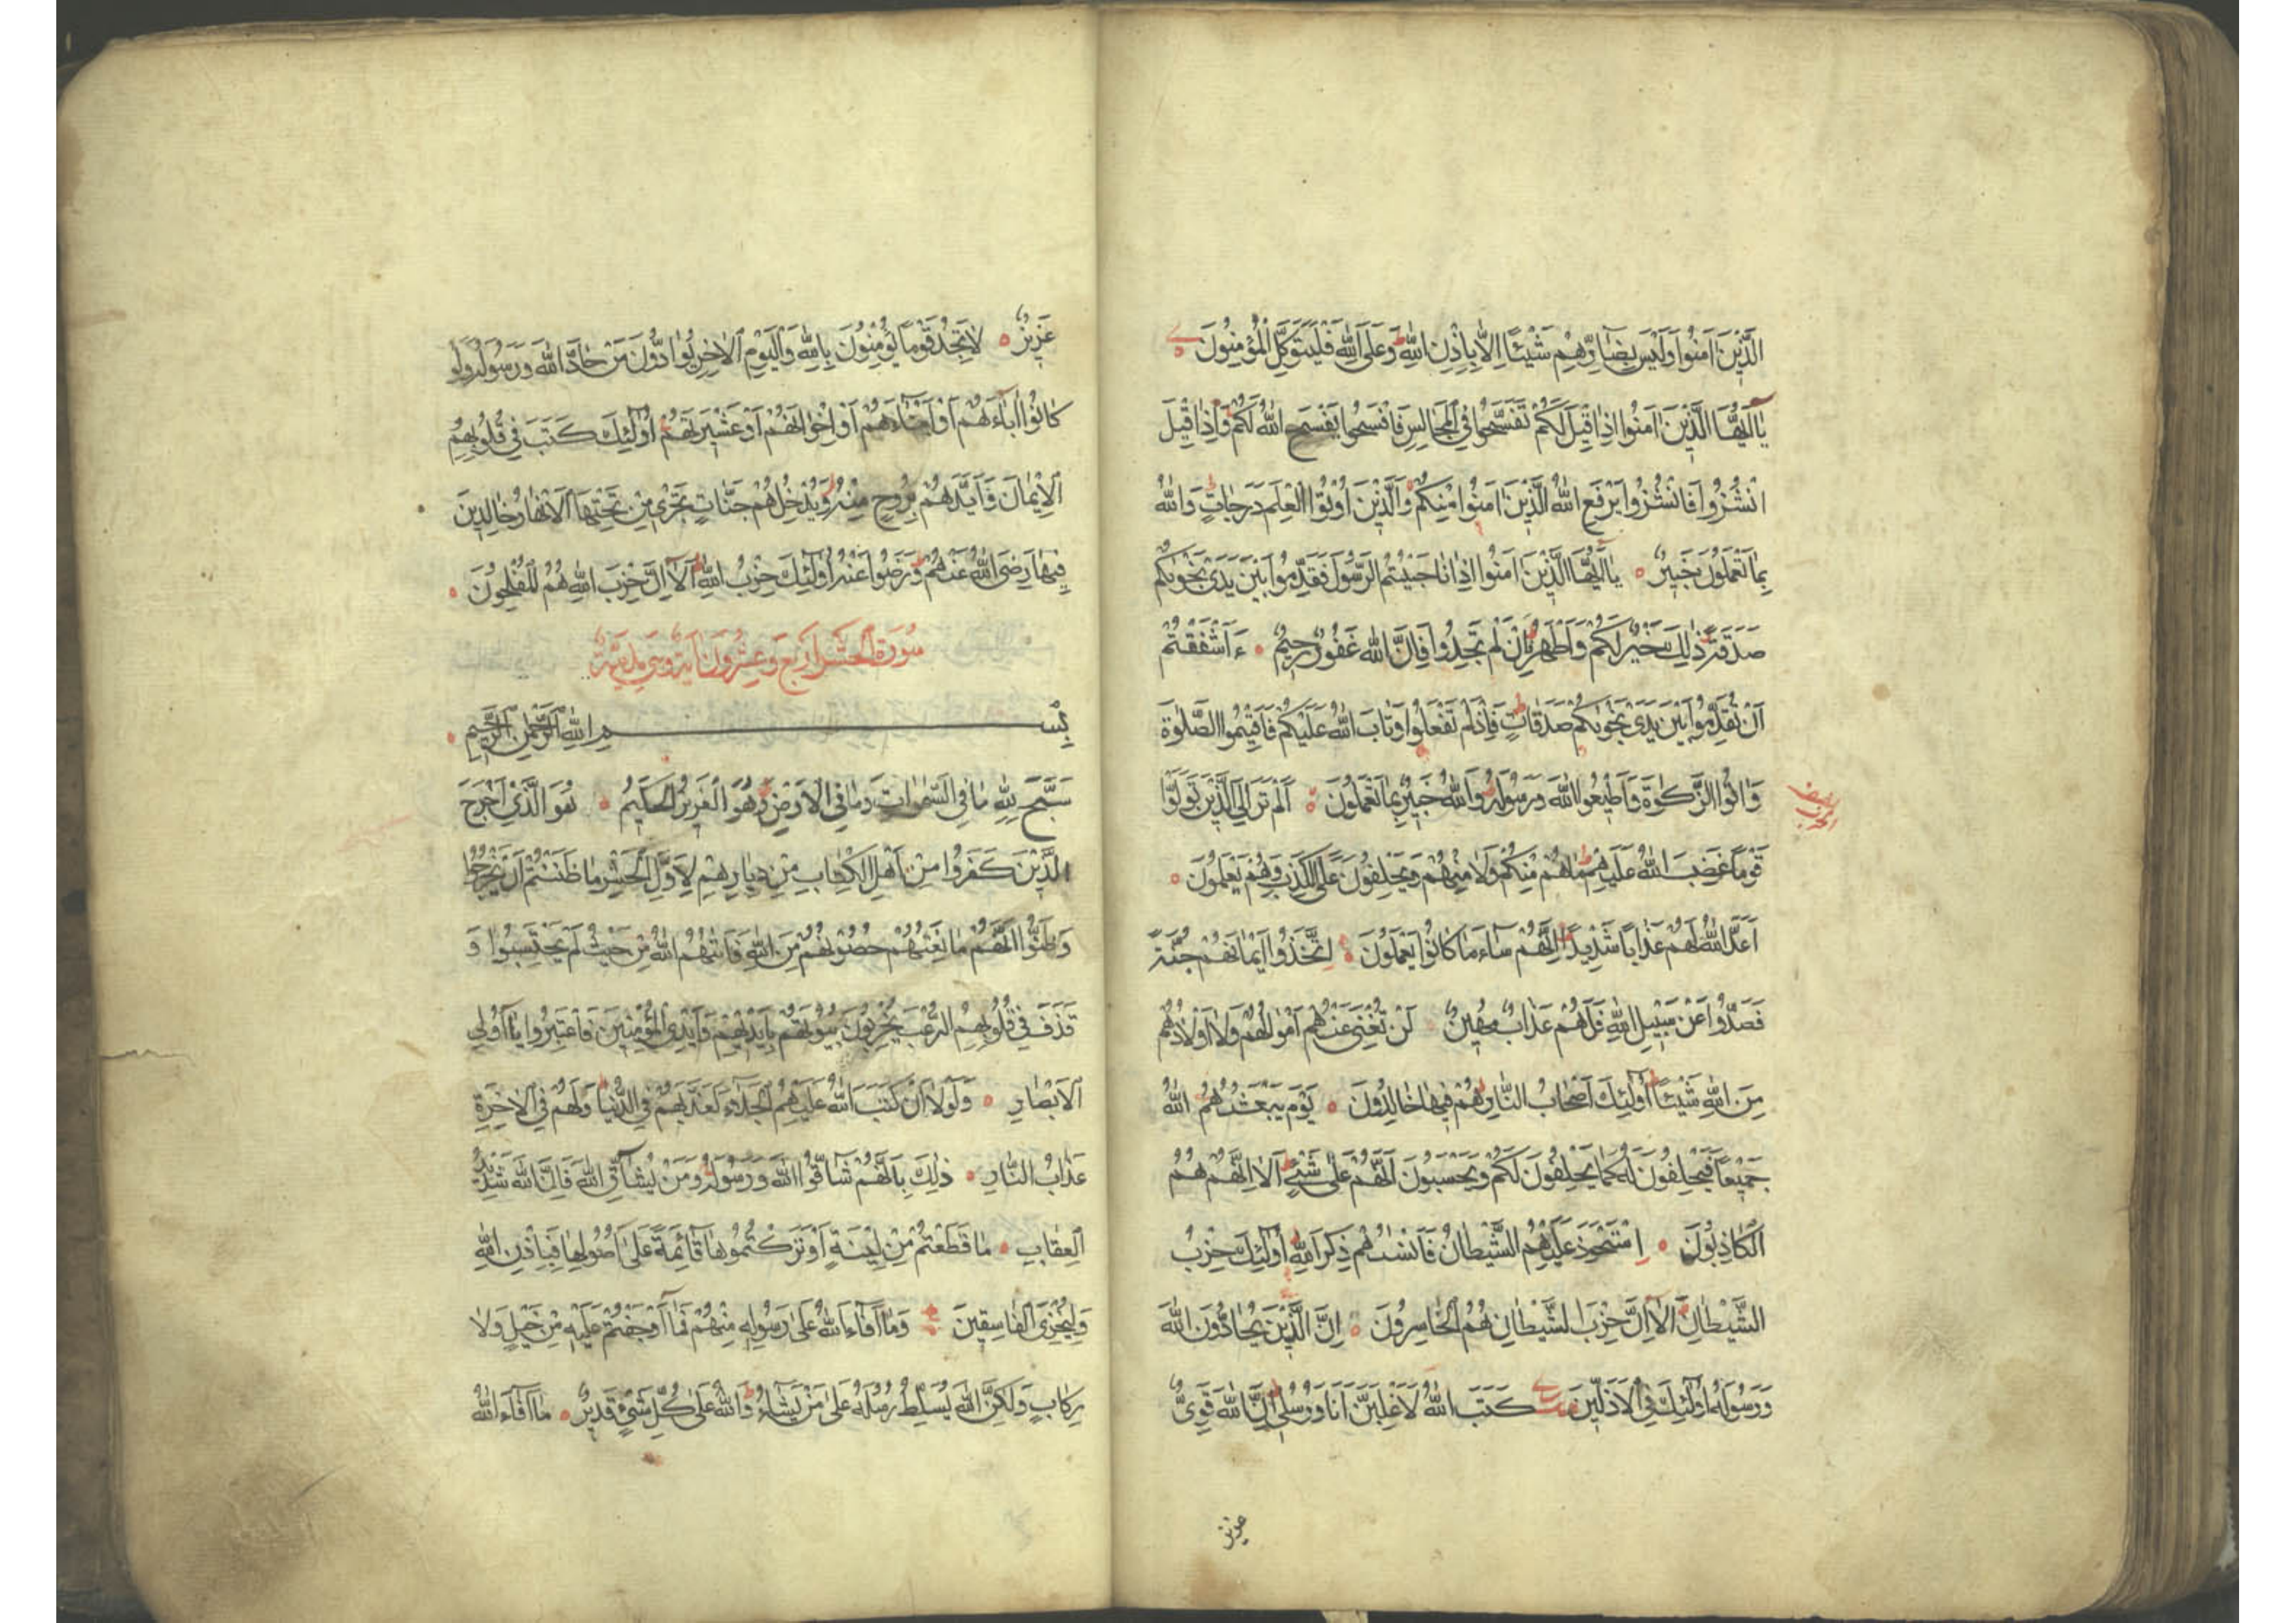 الَّذِينَ اٰمَنُوا وَلَيْسَ بِضَارِّهِمْ شَيْئًا اِلَّا بِاِذْنِ اللّٰهِ ط وَعَلَى اللّٰهِ فَلْيَتَوَكَّلِ الْمُؤْمِنُونَ
يَااَيُّهَا الَّذِينَ اٰمَنُوا اِذَا قِيلَ لَكُمْ تَفَسَّحُوا فِي الْمَجَالِسِ فَافْسَحُوا يَفْسَحِ اللّٰهُ لَكُمْ وَاِذَا قِيلَ
انْشُزُوا فَانْشُزُوا يَرْفَعِ اللّٰهُ الَّذِينَ اٰمَنُوا مِنْكُمْ وَالَّذِينَ اُوتُوا الْعِلْمَ دَرَجَاتٍ ط وَاللّٰهُ
بِمَا تَعْمَلُونَ خَبِيرٌ يَااَيُّهَا الَّذِينَ اٰمَنُوا اِذَا نَاجَيْتُمُ الرَّسُولَ فَقَدِّمُوا بَيْنَ يَدَيْ نَجْوٰيكُمْ
صَدَقَةً ط ذٰلِكَ خَيْرٌ لَكُمْ وَاَطْهَرُ ط فَاِنْ لَمْ تَجِدُوا فَاِنَّ اللّٰهَ غَفُورٌ رَحِيمٌ ءَاَشْفَقْتُمْ
اَنْ تُقَدِّمُوا بَيْنَ يَدَيْ نَجْوٰيكُمْ صَدَقَاتٍ ط فَاِذْ لَمْ تَفْعَلُوا وَتَابَ اللّٰهُ عَلَيْكُمْ فَاَقِيمُوا الصَّلٰوةَ
وَاٰتُوا الزَّكٰوةَ وَاَطِيعُوا اللّٰهَ وَرَسُولَهُ ط وَاللّٰهُ خَبِيرٌ بِمَا تَعْمَلُونَ اَلَمْ تَرَ اِلَى الَّذِينَ تَوَلَّوْا
نصف الحزب
قَوْمًا غَضِبَ اللّٰهُ عَلَيْهِمْ ط مَا هُمْ مِنْكُمْ وَلَا مِنْهُمْ وَيَحْلِفُونَ عَلَى الْكَذِبِ وَهُمْ يَعْلَمُونَ
اَعَدَّ اللّٰهُ لَهُمْ عَذَابًا شَدِيدًا ط اِنَّهُمْ سَاءَ مَا كَانُوا يَعْمَلُونَ اِتَّخَذُوا اَيْمَانَهُمْ جُنَّةً
فَصَدُّوا عَنْ سَبِيلِ اللّٰهِ فَلَهُمْ عَذَابٌ مُهِينٌ لَنْ تُغْنِيَ عَنْهُمْ اَمْوَالُهُمْ وَلَا اَوْلَادُهُمْ
مِنَ اللّٰهِ شَيْئًا ط اُولٰئِكَ اَصْحَابُ النَّارِ ط هُمْ فِيهَا خَالِدُونَ يَوْمَ يَبْعَثُهُمُ اللّٰهُ
جَمِيعًا فَيَحْلِفُونَ لَهُ كَمَا يَحْلِفُونَ لَكُمْ وَيَحْسَبُونَ اَنَّهُمْ عَلٰى شَيْءٍ ط اَلَا اِنَّهُمْ هُمُ
الْكَاذِبُونَ اِسْتَحْوَذَ عَلَيْهِمُ الشَّيْطَانُ فَاَنْسٰيهُمْ ذِكْرَ اللّٰهِ ط اُولٰئِكَ حِزْبُ
الشَّيْطَانِ ط اَلَا اِنَّ حِزْبَ الشَّيْطَانِ هُمُ الْخَاسِرُونَ اِنَّ الَّذِينَ يُحَادُّونَ اللّٰهَ
وَرَسُولَهُ اُولٰئِكَ فِي الْاَذَلِّينَ كَتَبَ اللّٰهُ لَاَغْلِبَنَّ اَنَا وَرُسُلِي ط اِنَّ اللّٰهَ قَوِيٌّ
عزيز
عَزِيزٌ لَا تَجِدُ قَوْمًا يُؤْمِنُونَ بِاللّٰهِ وَالْيَوْمِ الْاٰخِرِ يُوَادُّونَ مَنْ حَادَّ اللّٰهَ وَرَسُولَهُ وَلَوْ
كَانُوا اٰبَاءَهُمْ اَوْ اَبْنَاءَهُمْ اَوْ اِخْوَانَهُمْ اَوْ عَشِيرَتَهُمْ ط اُولٰئِكَ كَتَبَ فِي قُلُوبِهِمُ
الْاِيمَانَ وَاَيَّدَهُمْ بِرُوحٍ مِنْهُ ط وَيُدْخِلُهُمْ جَنَّاتٍ تَجْرِي مِنْ تَحْتِهَا الْاَنْهَارُ خَالِدِينَ
فِيهَا رَضِيَ اللّٰهُ عَنْهُمْ وَرَضُوا عَنْهُ اُولٰئِكَ حِزْبُ اللّٰهِ ط اَلَا اِنَّ حِزْبَ اللّٰهِ هُمُ الْمُفْلِحُونَ
سُورَةُ الْحَشْرِ اَرْبَعٌ وَعِشْرُونَ اٰيَةً وَهِيَ مَدَنِيَّةٌ
بِسْمِ اللّٰهِ الرَّحْمٰنِ الرَّحِيمِ
سَبَّحَ لِلّٰهِ مَا فِي السَّمٰوَاتِ وَمَا فِي الْاَرْضِ وَهُوَ الْعَزِيزُ الْحَكِيمُ هُوَ الَّذِي اَخْرَجَ
الَّذِينَ كَفَرُوا مِنْ اَهْلِ الْكِتَابِ مِنْ دِيَارِهِمْ لِاَوَّلِ الْحَشْرِ مَا ظَنَنْتُمْ اَنْ يَخْرُجُوا
وَظَنُّوا اَنَّهُمْ مَانِعَتُهُمْ حُصُونُهُمْ مِنَ اللّٰهِ فَاَتٰيهُمُ اللّٰهُ مِنْ حَيْثُ لَمْ يَحْتَسِبُوا وَ
قَذَفَ فِي قُلُوبِهِمُ الرُّعْبَ يُخْرِبُونَ بُيُوتَهُمْ بِاَيْدِيهِمْ وَاَيْدِي الْمُؤْمِنِينَ فَاعْتَبِرُوا يَا اُولِي
الْاَبْصَارِ وَلَوْلَا اَنْ كَتَبَ اللّٰهُ عَلَيْهِمُ الْجَلَاءَ لَعَذَّبَهُمْ فِي الدُّنْيَا ط وَلَهُمْ فِي الْاٰخِرَةِ
عَذَابُ النَّارِ ذٰلِكَ بِاَنَّهُمْ شَاقُّوا اللّٰهَ وَرَسُولَهُ وَمَنْ يُشَاقِّ اللّٰهَ فَاِنَّ اللّٰهَ شَدِيدُ
الْعِقَابِ مَا قَطَعْتُمْ مِنْ لِينَةٍ اَوْ تَرَكْتُمُوهَا قَائِمَةً عَلٰى اُصُولِهَا فَبِاِذْنِ اللّٰهِ
وَلِيُخْزِيَ الْفَاسِقِينَ وَمَا اَفَاءَ اللّٰهُ عَلٰى رَسُولِهِ مِنْهُمْ فَمَا اَوْجَفْتُمْ عَلَيْهِ مِنْ خَيْلٍ وَلَا
رِكَابٍ وَلٰكِنَّ اللّٰهَ يُسَلِّطُ رُسُلَهُ عَلٰى مَنْ يَشَاءُ ط وَاللّٰهُ عَلٰى كُلِّ شَيْءٍ قَدِيرٌ مَا اَفَاءَ اللّٰهُ